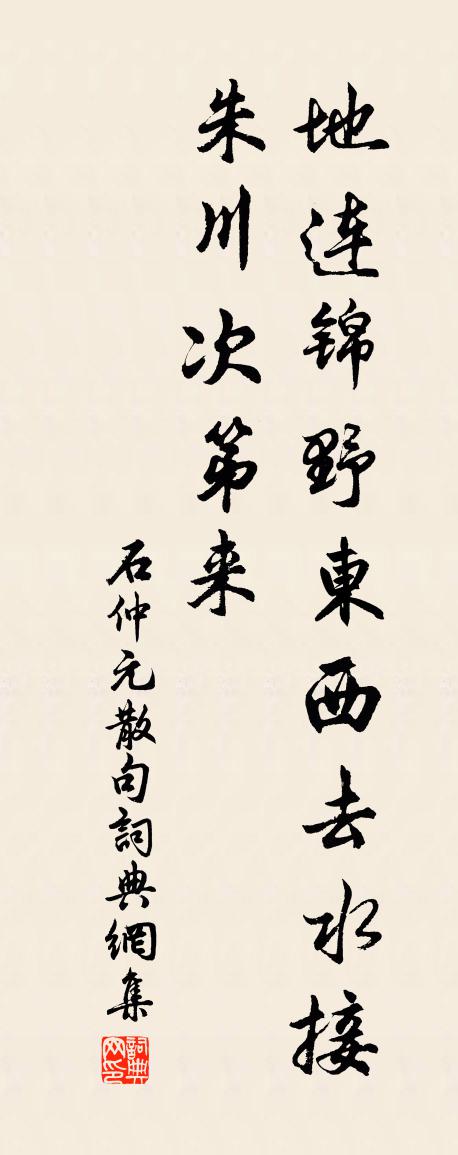 地連锦野東西去水接
朱川次第来
石仲元散句詞典網集
詞典网印